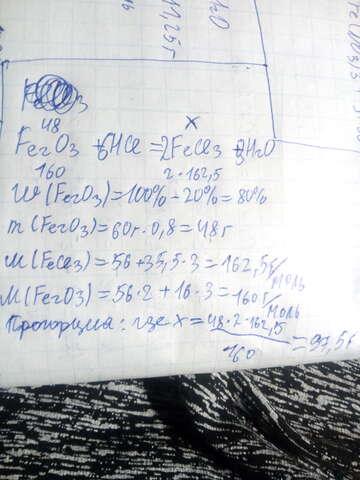 H2O
11,25г
48 x
Fe2O3 + 6HCl = 2FeCl3 + 3H2O
160 2·162,5
W(Fe2O3) = 100% - 20% = 80%
m(Fe2O3) = 60г · 0,8 = 48г
M(FeCl3) = 56 + 35,5·3 = 162,5г/моль
M(Fe2O3) = 56·2 + 16·3 = 160г/моль
Пропорция: где x = 48·2·162,5/160 = 97,5г